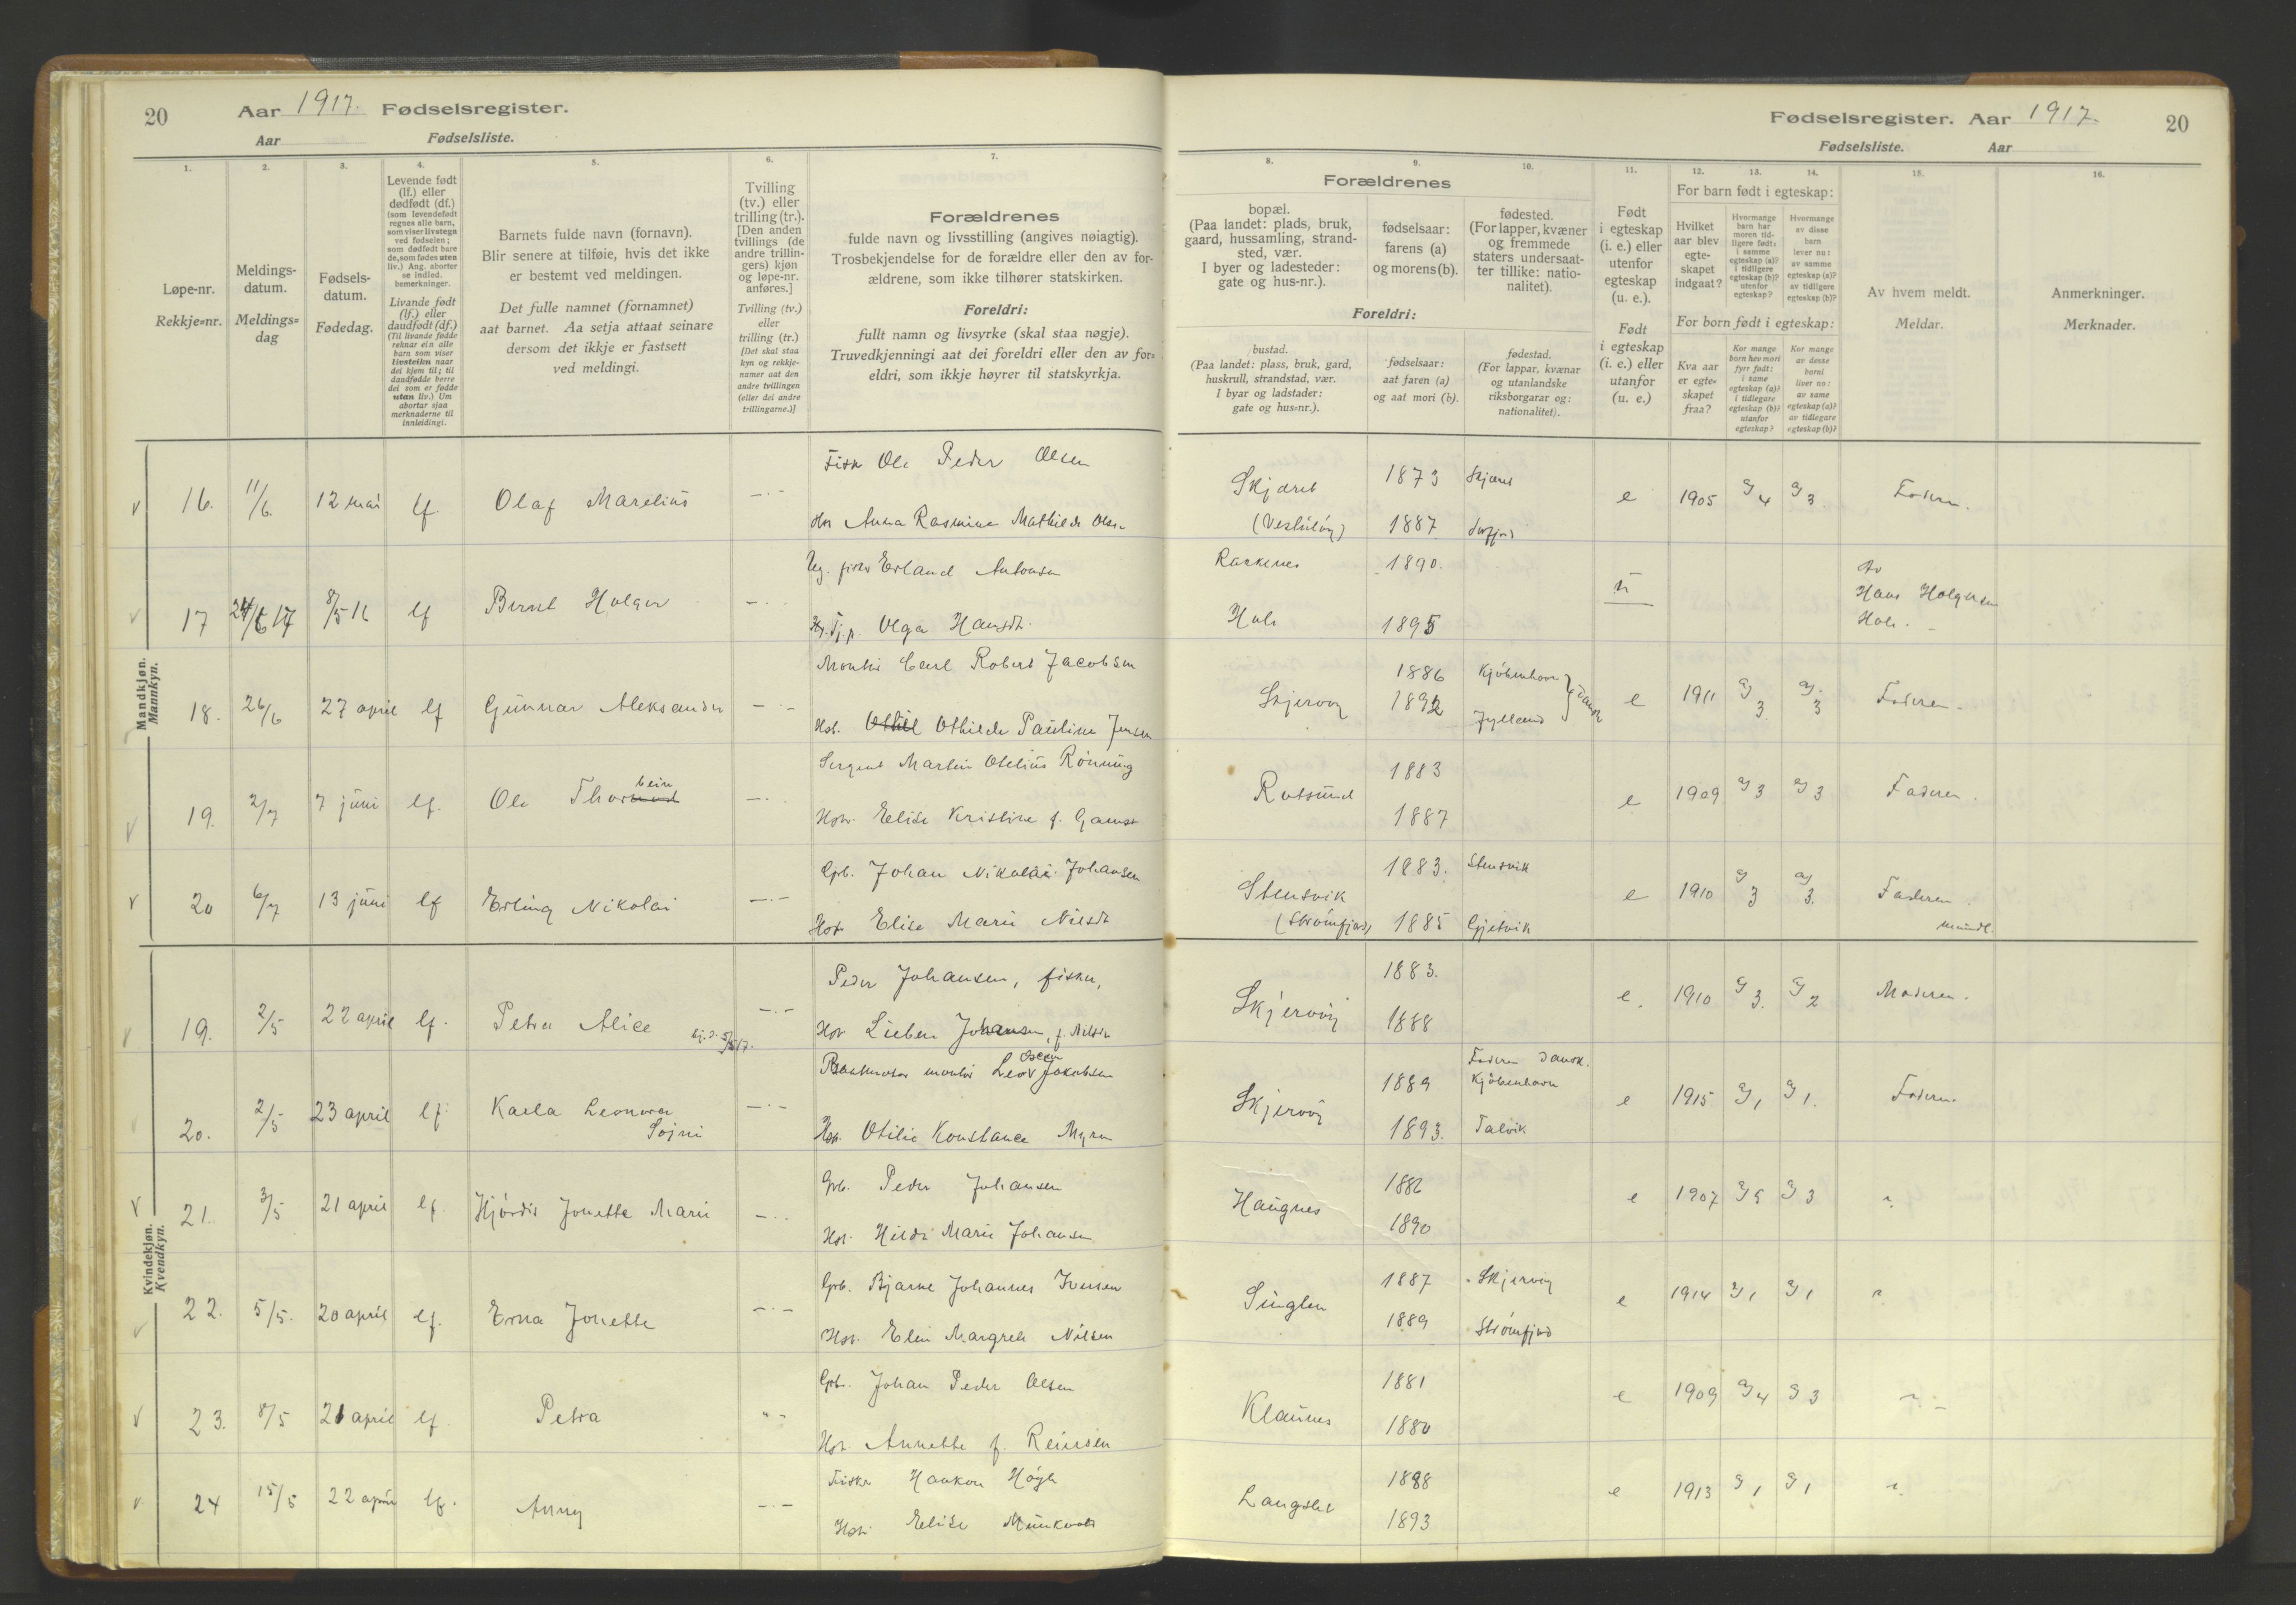 20 Aar 1917. Fødselsregister.
Aar Fødselsliste.
Fødselsregister. Aar 1917. 20
Fødselsliste. Aar
1. 2. 3. 4. 5. 6. 7.
Løpe-nr.
Rekkje=nr.
Meldings-
datum.
Meldings=
dag
Fødsels-
datum.
Fødedag.
Levende født
(lf.) eller
dødfødt (df.)
(som levendefødt
regnes alle barn,
som viser livstegn
ved fødselen;
som dødfødt bare
de, som fødes uten
liv.) Ang. aborter
se indled.
bemerkninger.
Livande født
(lf.) eller
daudfødt (df.)
(Til livande fødde
reknar ein alle
barn som viser
livsteikn naar
dei kjem til; til
daudfødde berre
dei som er fødde
utan liv.) Um
abortar sjaa
merknaderne til
innleidingi.
Barnets fulde navn (fornavn).
Blir senere at tilføie, hvis det ikke
er bestemt ved meldingen.
Det fulle namnet (fornamnet)
aat barnet. Aa setja attaat seinare
dersom det ikkje er fastsett
ved meldingi.
Tvilling
(tv.) eller
trilling (tr.).
[Den anden
tvillings (de
andre trillin-
gers) kjøn
og løpe-nr.
anføres.]
Tvilling (tv.)
eller
trilling (tr.)
[Det skal staa
kyn og rekkje-
numer aat den
andre tvillingen
(eller dei andre
trillingarne.)]
Forældrenes
fulde navn og livsstilling (angives nøiagtig).
Trosbekjendelse for de forældre eller den av for-
ældrene, som ikke tilhører statskirken.
Foreldri:
fullt namn og livsyrke (skal staa nøgje).
Truvedkjenningi aat dei foreldri eller den av for=
eldri, som ikkje høyrer til statskyrkja.
8. 9. 10. 11. 12. 13. 14. 15. 16.
Forældrenes
bopæl.
(Paa landet: plads, bruk,
gaard, hussamling, strand-
sted, vær.
I byer og ladesteder:
gate og hus-nr.).
fødselsaar:
farens (a)
og morens (b).
fødested.
(For lapper, kvæner
og fremmede
staters undersaat-
ter tillike: natio-
nalitet).
Foreldri:
bustad.
(Paa landet: plass, bruk, gard,
huskrull, strandstad, vær.
I byar og ladstader:
gate og hus=nr.).
fødselsaar:
aat faren (a)
og aat mori (b).
fødestad.
(For lappar, kvænar
og utanlandske
riksborgarar og:
nationalitet).
Født
i egteskap
(i. e.) eller
utenfor
egteskap
(u. e.).
Født
i egteskap
(i. e.) eller
utanfor
(u. e.)
For barn født i egteskap:
Hvilket
aar blev
egte-
skapet
indgaat?
Hvormange
barn har
moren tid-
ligere født:
i samme
egteskap (a)?
i tidligere
egteskap (b)?
utenfor
egteskap?
Hvormange
av disse
barn
lever nu:
av samme
egteskap (a)?
av tidligere
egteskap (b)?
For born født i egteskap:
Kva aar
er egte=
skapet
fraa?
Kor mange
born hev mori
fyrr født:
i same
egteskap (a)?
i tidlegare
egteskap (b)?
utanfor
egteskap?
Kor mange
av desse
borni
liver no:
av same
egteskap (a)?
av tidlegare
egteskap (b)?
Av hvem meldt.
Meldar.
Anmerkninger.
Merknader.
Mandkjøn.
Mannkyn.
Fisk Ole Peder Olsen 1873
16. 11/6. 12 mai lf. Olaf Marelius Skjæret 1905 a) 4 a) 3 Faderen.
Anna Rasmine Mathilde Olsen 1887
Ug. fisker Erland Antonsen 1890.
17 24/6 17 8/5 16 lf Bernt Holger u Av Hans Holgersen
Olga Hansdtr. Hole 1895 Hole.
Montør Carl Robert Jacobsen 1886 Kjöbenhavn
18. 26/6 27 april lf Gunnar Aleksander Skjervøy e 1911 a) 3 a) 3 Faderen. dansk
Hst. Othilde Pauline Jensen 1892 Jylland
Sergent Martin Otelius Rönning 1883
19. 2/7 7 juni lf. Ole Thorbein Rotsund e 1909 a) 3 a) 3 Faderen.
Hstr. Elise Kristine f. Gamst 1887
Gpb. Johan Nikolai Johansen 1883. Stensvik
20 6/7 13 juni lf Erling Nikolai Stensvik e 1910 a) 3 a) 3. Faderen.
Hstr Elise Marie Nilsdt (Strömfjord) 1885 Gjetvik mundl.
Kvindekjøn.
Kvendkyn.
Peder Johansen, fisker, 1883.
19. 2/5 22 april lf. Petra Alice Skjervöy e. 1910 a) 3. a) 2 Moderen.
Hstr Lieben Johansen, f. Nilsdtr 1888
montör Leo Oscar Jakobsen 1889 Faderen dansk. Kjöbenhavn
20. 2/5 23 april lf. Kaela Leonora Skjervöy e 1915 a) 1 a) 1. Faderen
Sojni
Hst. Otilie Konstance Myren 1893. Talvik
Gpb. Peder Johansen 1886
21. 3/5 21 april lf. Hjördis Jonette Marie Haugnes e 1907 a) 5 a) 3
Hst. Hilda Marie Johansen 1890
Gpb. Bjarne Johannes Iversen 1887 Skjervöy
22. 5/5. 20 april lf. Erna Jonette Singlen e 1914 a) 1 a) 1
Hst. Elen Margrete Nilsen 1889 Strömfjord
Gpb. Johan Peder Olsen 1881
23. 8/5 21 april lf. Petra Klaunes e 1909 a) 4 a) 3
Hst. Annette f. Reiersen 1880
Fisker Haakon Högh 1888
24 15/5 22 april lf. Anny Langslet e 1913 a) 1 a) 1
Hst. Elise Munkvold 1893